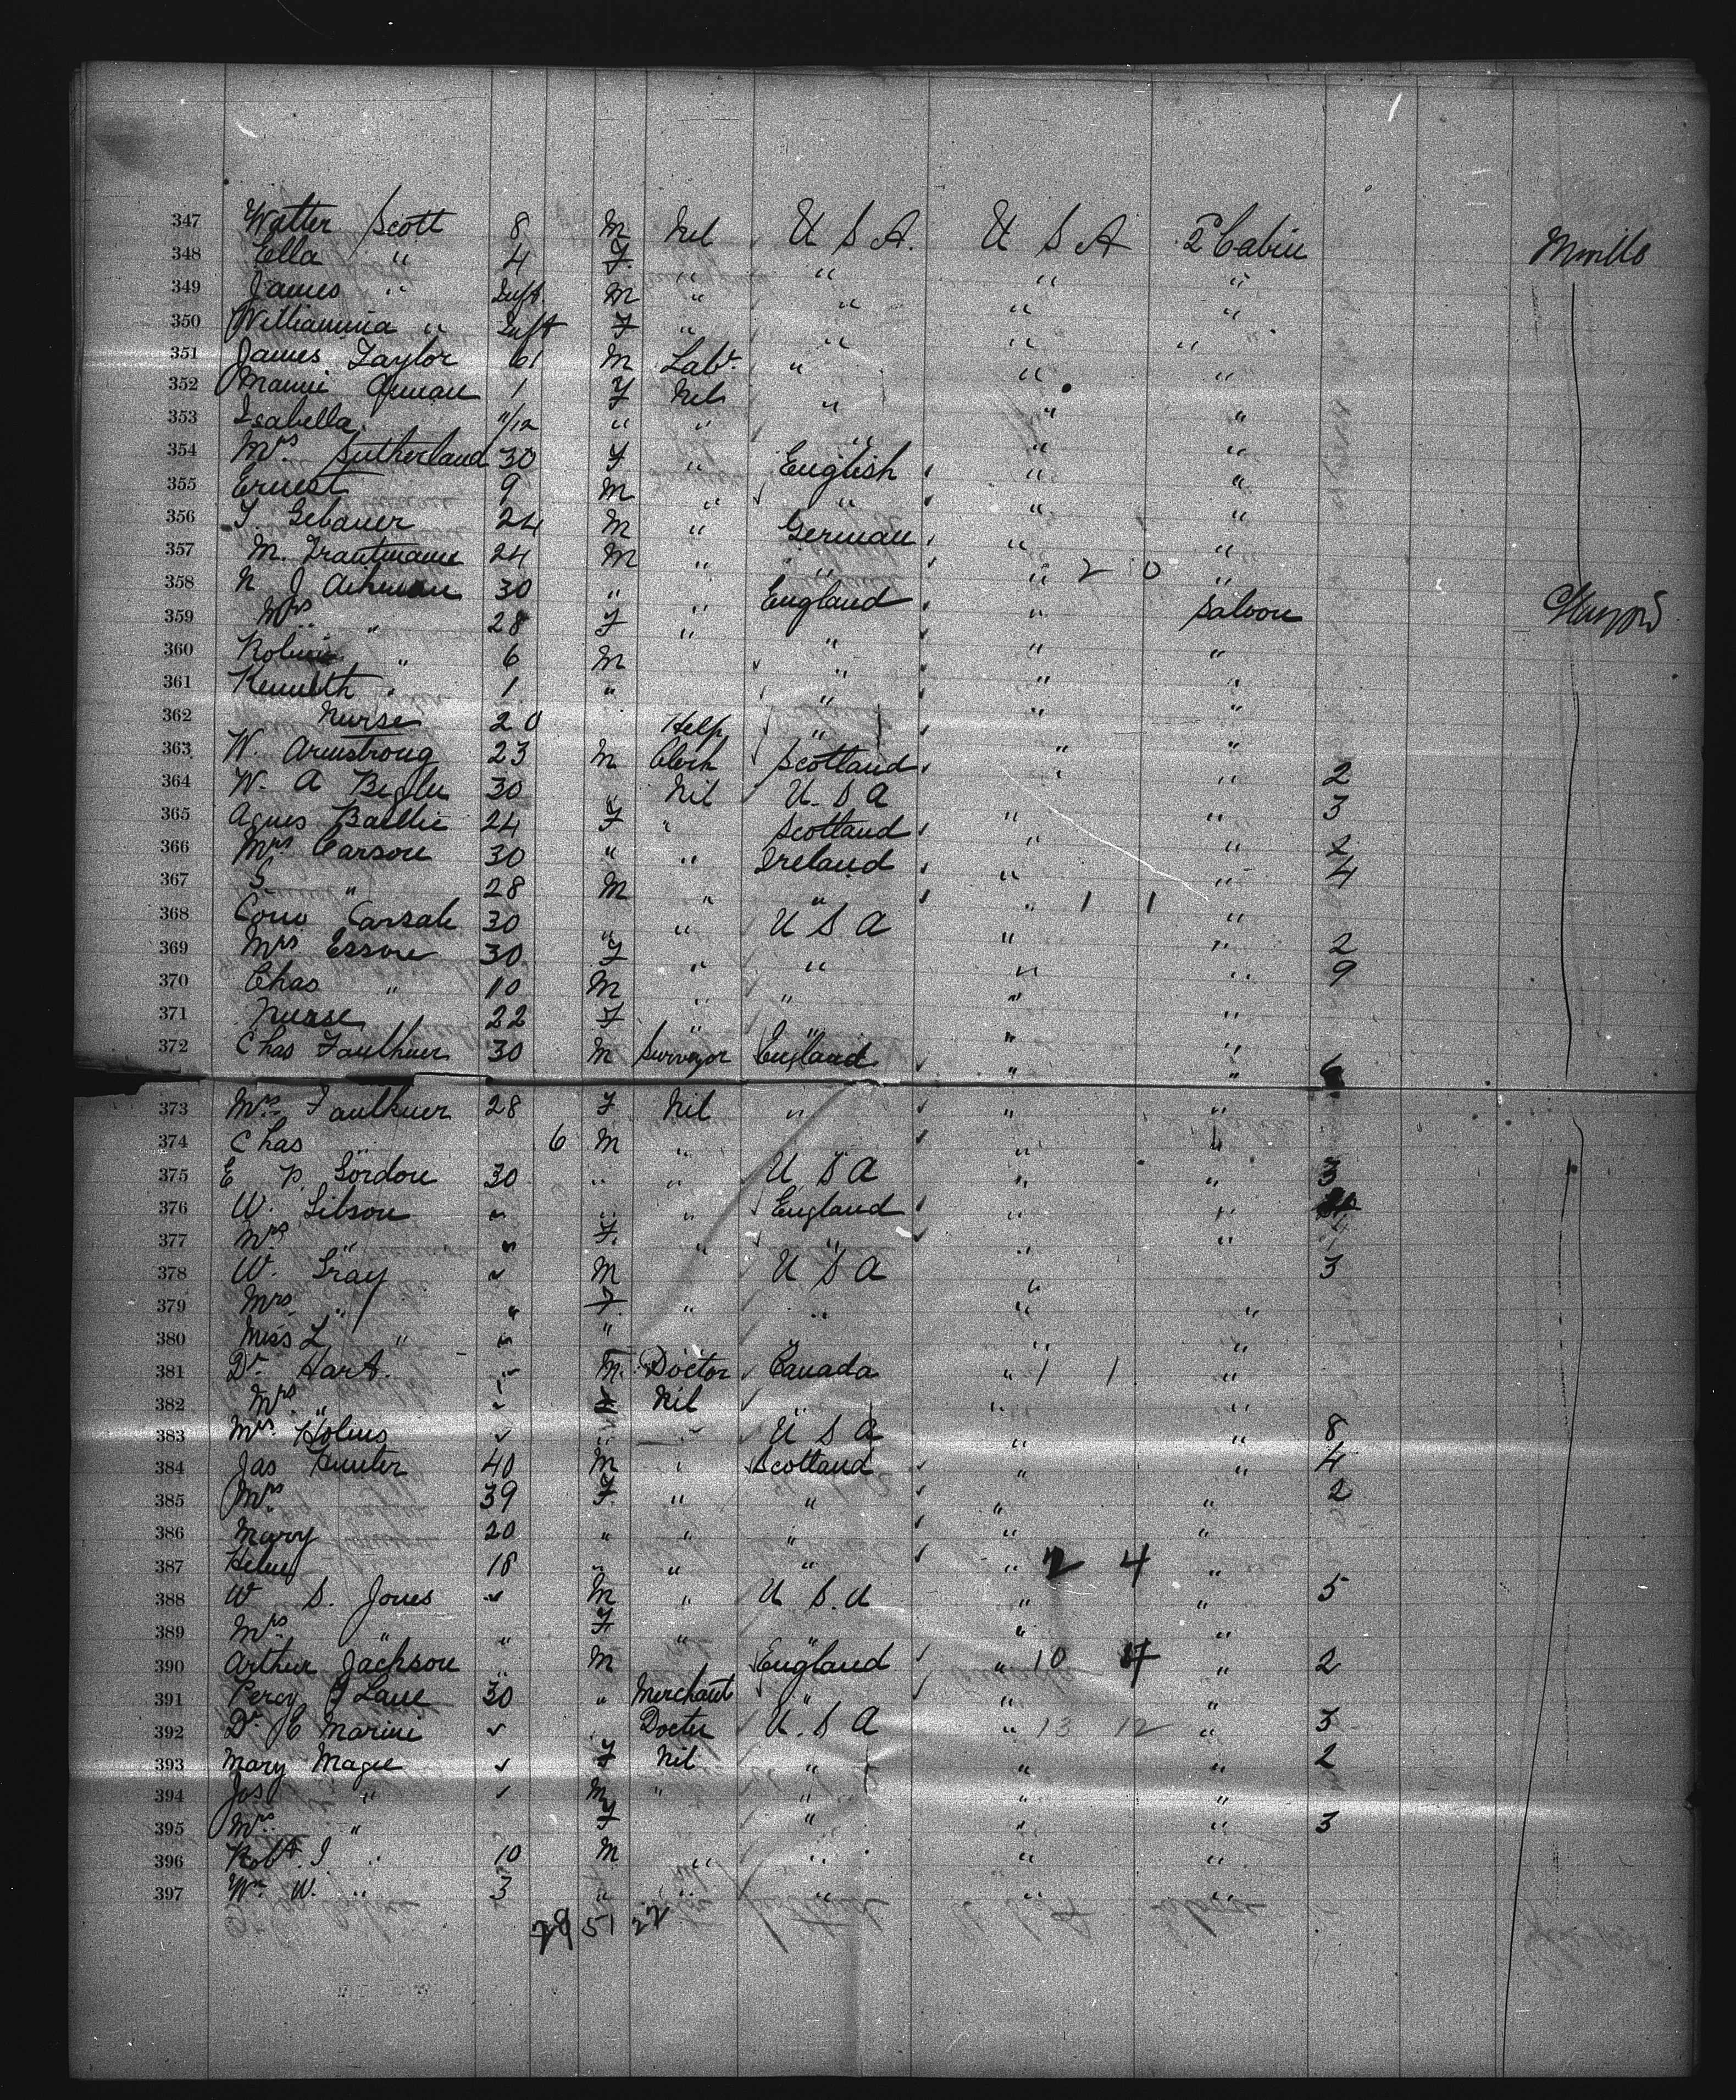 347 Walter Scott 8 M Nil U S A. U S A 2ⁿ Cabin
348 Ella " 4 F. " " " "
349 James " Inft. M " " " "
350 Williamina " Inft F " " " "
351 James Taylor 61 M Labr. " " "
352 1 F Nil " " "
353 Isabella 11/12 " " " " "
354 Mrs. Sutherland 30 F " English " "
355 Ernest 9 M " " " "
356 Gebauer 24 M " German " "
357 M. Trautmann 24 M " " " 2 0 "
358 N J 30 " " England " Saloon
359 Mrs " 28 F " " " "
360 " 6 M " " "
361 Kenneth " 1 " " " "
362 Nurse 20 Help " " "
363 W. Armstrong 23 M Clerk Scotland " " 2
364 W. A 30 " Nil U. S A " " 3
365 Agnes Baillie 24 F " Scotland " " 2
366 Mrs Carson 30 " " Ireland " " 4
367 S " 28 M " " " 1 1 "
368 30 " " U S A " " 2
369 Mrs Esson 30 F " " " " 9
370 Chas " 10 M " " " "
371 Nurse 22 F " " " "
372 Chas Faulkner 30 M Surveyor England " " 6
373 Mrs. Faulkner 28 F Nil " " "
374 Chas " 6 M " " "
375 E P. Gordon 30 " " U S A " " 3
376 W. Gibson " " " England " "
377 Mrs " " F. " " " "
378 W. Gray " M U S A " 3
379 Mrs. " " F. " " " "
380 Miss L " " " " "
381 Dr. Hart. " M. Doctor Canada " 1 1 "
382 Mrs. " " F Nil " " "
383 Mrs. Holms " " " U S A " " 8
384 Jas Hunter 40 M " Scotland " " 4
385 Mrs. 39 F. " " " " 2
386 Mary 20 " " " " "
387 Helen 18 " " " " 2 4 "
388 W S. Jones " M " U S. A " " 5
389 Mrs. " " F " " "
390 Arthur Jackson " M England " 10 " 2
391 Percy Lane 30 " Merchant " " "
392 Dr. C Marine " " Doctor U. S A " 13 12 " 3
393 Mary Magee " F Nil " " " 2
394 Jos " " M " " " "
395 Mrs. " F " " " 3
396 Robt. J " 10 M " " " "
397 Wm. W. " 3 " " " " "
51 22